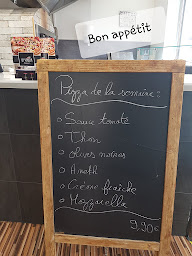 Bon appétit
Pizza de la semaine :
o Sauce tomate
o Thon
o Olives noires
o Aneth
o Crème fraîche
o Mozzarella
9,90€